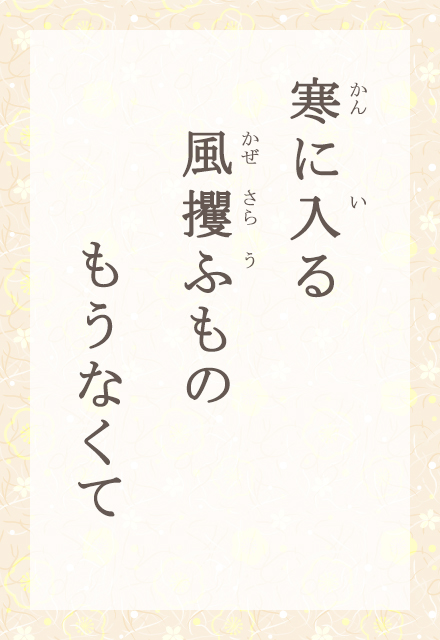 寒に入る
かん い
風攫ふもの
かぜ さら う
もうなくて